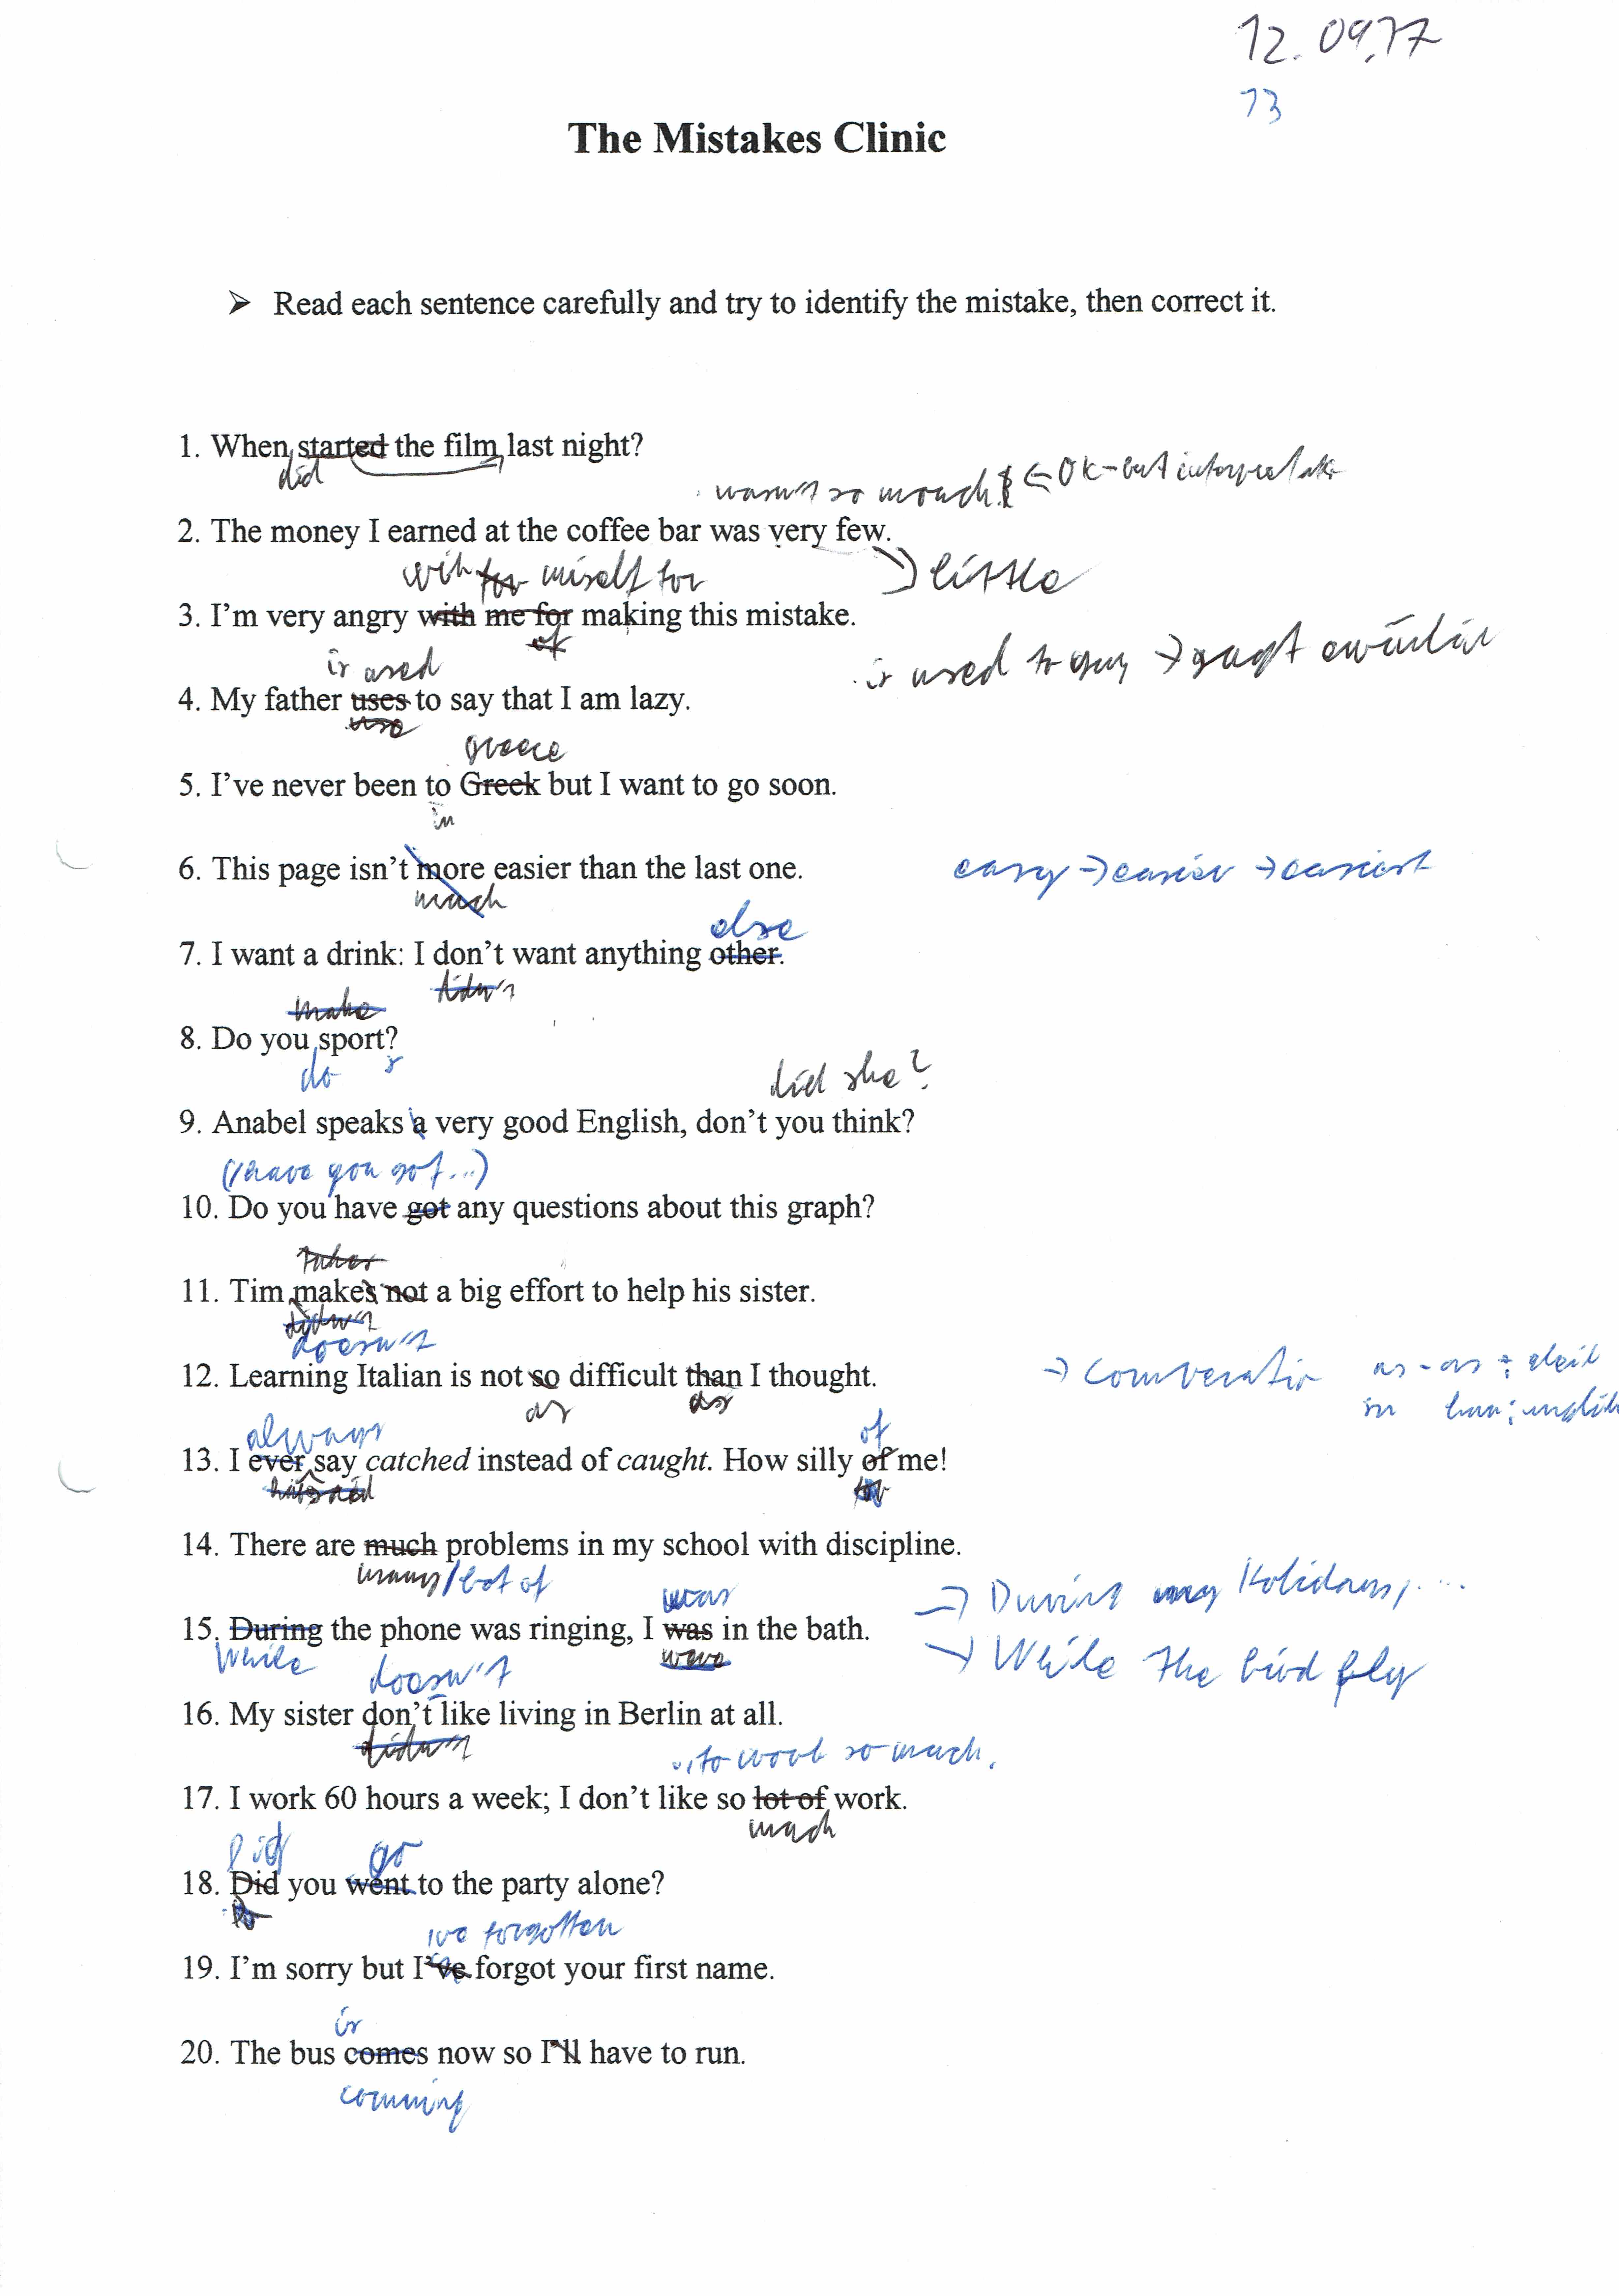 12.09.17
13
The Mistakes Clinic
➢ Read each sentence carefully and try to identify the mistake, then correct it.
1. When started the film last night?
did
wasn't so mouch ⇐ OK - but
2. The money I earned at the coffee bar was very few.
→ little
with for miself for
3. I'm very angry with me for making this mistake.
of
is used
is used to →
4. My father uses to say that I am lazy.
use
greece
5. I've never been to Greek but I want to go soon.
in
6. This page isn't more easier than the last one.
easy → easier → easiest
much
else
7. I want a drink: I don't want anything other.
didn't
make
8. Do you sport?
do s
did she?
9. Anabel speaks a very good English, don't you think?
(/Have you got...)
10. Do you have got any questions about this graph?
11. Tim makes not a big effort to help his sister.
didn't
doesn't
12. Learning Italian is not so difficult than I thought.
→ as - as
as as
always of
13. I ever say catched instead of caught. How silly of me!
14. There are much problems in my school with discipline.
many/lot of
was
→ During my Holidays, ...
15. During the phone was ringing, I was in the bath.
While were
→ While the bird fly
doesn't
16. My sister don't like living in Berlin at all.
didn't
.., to work so much.
17. I work 60 hours a week; I don't like so lot of work.
much
Did go
18. Did you went to the party alone?
Do
ive forgotten
19. I'm sorry but I've forgot your first name.
is
20. The bus comes now so I'll have to run.
comming